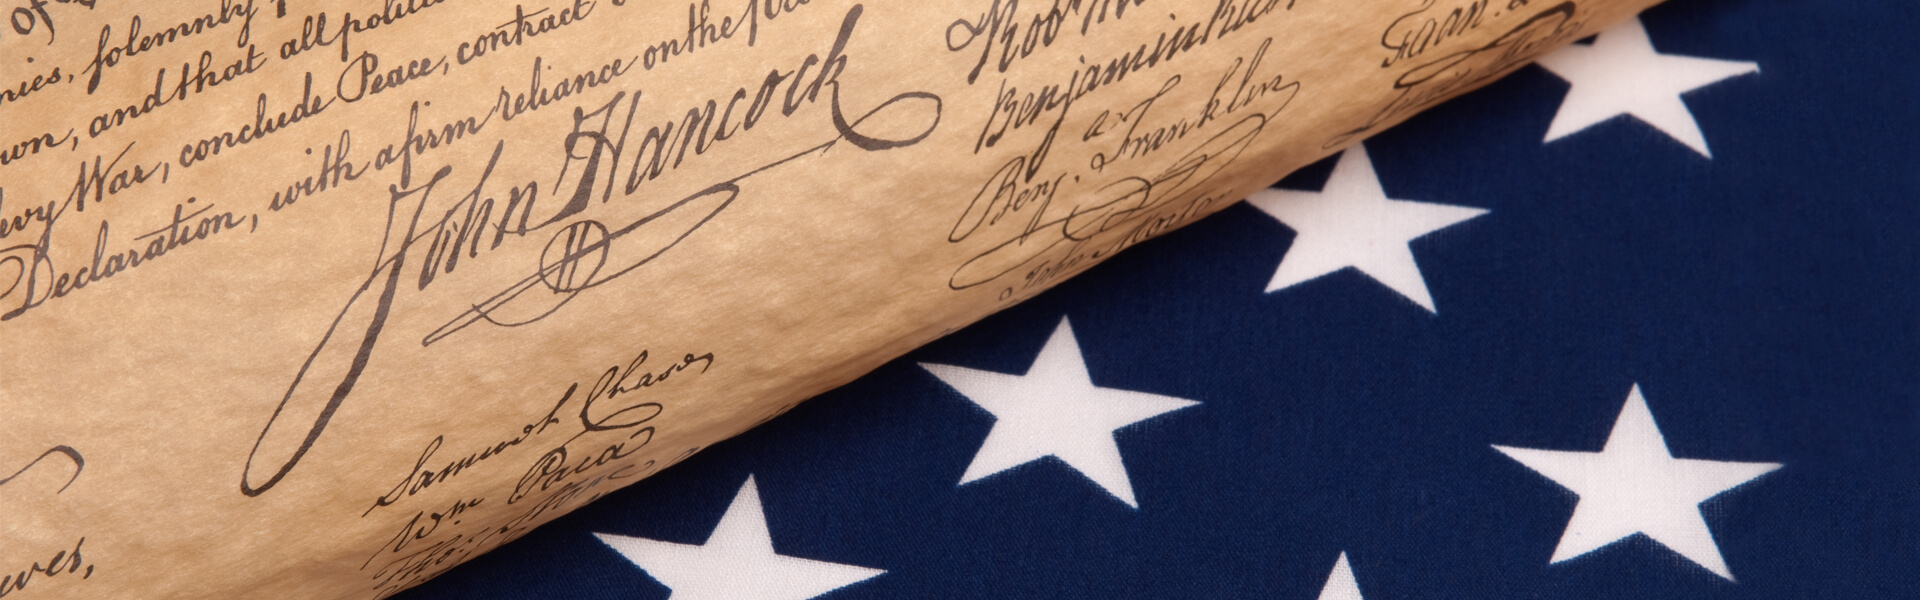 of
nies, solemnly
own, and that all politi
evy War, conclude Peace, contract
Declaration, with a firm reliance on the
John Hancock
Rob
Benjamin Rush
Benj. Franklin
John Morton
Samuel Chase
Wm. Paca
Thos. Stone